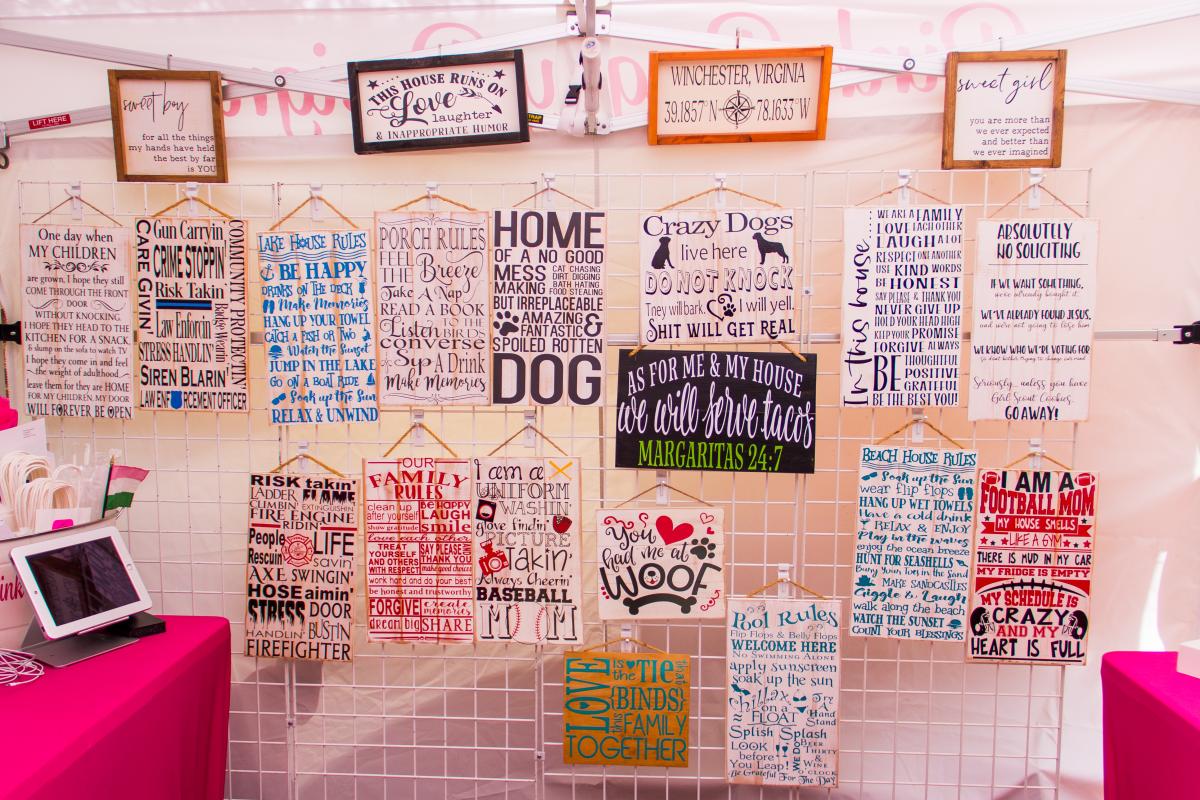 LIFT HERE
sweet boy
for all the things
my hands have held
the best by far
is YOU
THIS HOUSE RUNS ON
Love
laughter
& INAPPROPRIATE HUMOR
WINCHESTER, VIRGINIA
39.1857° N
78.1633° W
sweet girl
you are more than
we ever expected
and better than
we ever imagined
One day when
MY CHILDREN
are grown, I hope they still
COME THROUGH THE FRONT
DOOR
WITHOUT KNOCKING.
I HOPE THEY HEAD TO THE
KITCHEN FOR A SNACK,
& slump on the sofa to watch TV
I hope they come in and feel
the weight of adulthood
leave them for they are HOME
FOR MY CHILDREN, MY DOOR
WILL FOREVER BE OPEN
CARE GIVIN'
Gun Carryin'
CRIME STOPPIN'
Risk Takin'
Law Enforcin'
STRESS HANDLIN'
SIREN BLARIN'
COMMUNITY PROTECTIN'
LAW ENFORCEMENT OFFICER
LAKE HOUSE RULES
BE HAPPY
DRINKS ON THE DECK
Make Memories
HANG UP YOUR TOWEL
CATCH A FISH OR TWO
Watch the Sunset
JUMP IN THE LAKE
GO ON A BOAT RIDE
Soak up the Sun
RELAX & UNWIND
PORCH RULES
FEEL THE Breeze
Take A Nap
READ A BOOK
Listen TO THE BIRDS
converse
Sip A Drink
Make Memories
HOME
OF A NO GOOD
MESS MAKING
CAT CHASING
DIRT DIGGING
BATH HATING
FOOD STEALING
BUT IRREPLACEABLE
AMAZING
FANTASTIC &
SPOILED ROTTEN
DOG
Crazy Dogs
live here
DO NOT KNOCK
They will bark
I will yell.
SHIT WILL GET REAL
AS FOR ME & MY HOUSE
we will serve tacos
MARGARITAS 24:7
In this house
WE ARE A FAMILY
LOVE EACH OTHER
LAUGH A LOT
RESPECT ONE ANOTHER
USE KIND WORDS
BE HONEST
SAY PLEASE & THANK YOU
NEVER GIVE UP
HOLD YOUR HEAD HIGH
KEEP YOUR PROMISE
FORGIVE ALWAYS
BE
THOUGHTFUL
POSITIVE
GRATEFUL
BE THE BEST YOU!
ABSOLUTELY
NO SOLICITING
IF WE WANT SOMETHING,
we've already bought it.
WE'VE ALREADY FOUND JESUS,
and we're not going to lose him
WE KNOW WHO WE'RE VOTING FOR
Seriously... unless you have
Girl Scout Cookies.
GO AWAY!
RISK takin'
LADDER CLIMBIN'
FLAME EXTINGUISHIN'
FIRE ENGINE
RIDIN'
People Rescuin'
LIFE savin'
AXE SWINGIN'
HOSE aimin'
STRESS HANDLIN'
DOOR BUSTIN'
FIREFIGHTER
OUR
FAMILY
RULES
clean up after yourself
BE HAPPY
show gratitude
LAUGH
smile
love each other
TREAT YOURSELF AND OTHERS WITH RESPECT
SAY PLEASE THANK YOU
make good choices
work hard and do your best
be honest and trustworthy
FORGIVE
create memories
dream big
SHARE
I am a
UNIFORM
WASHIN'
Glove findin'
PICTURE
Takin'
Always Cheerin'
BASEBALL
MOM
You
had me at
WOOF
BEACH HOUSE RULES
Soak up the Sun
wear flip flops
HANG UP WET TOWELS
have a cold drink
RELAX & ENJOY
Play in the waves
enjoy the ocean breeze
HUNT FOR SEASHELLS
Bury Your Toes in the Sand
MAKE SANDCASTLES
Giggle & Laugh
walk along the beach
WATCH THE SUNSET
COUNT YOUR BLESSINGS
I AM A
FOOTBALL MOM
MY HOUSE SMELLS
LIKE A GYM
THERE IS MUD IN MY CAR
MY FRIDGE IS EMPTY
MY SCHEDULE IS
CRAZY
AND MY
HEART IS FULL
LOVE
is the TIE that
{BINDS}
this FAMILY
TOGETHER
Pool Rules
Flip Flops & Belly Flops
WELCOME HERE
No Swimming Alone
apply sunscreen
soak up the sun
Chillax
on a
FLOAT
Try A Hand Stand
Splish Splash
LOOK
before
You Leap!
WE DO
BEER THIRTY
& WINE O'CLOCK
Be Grateful For The Day